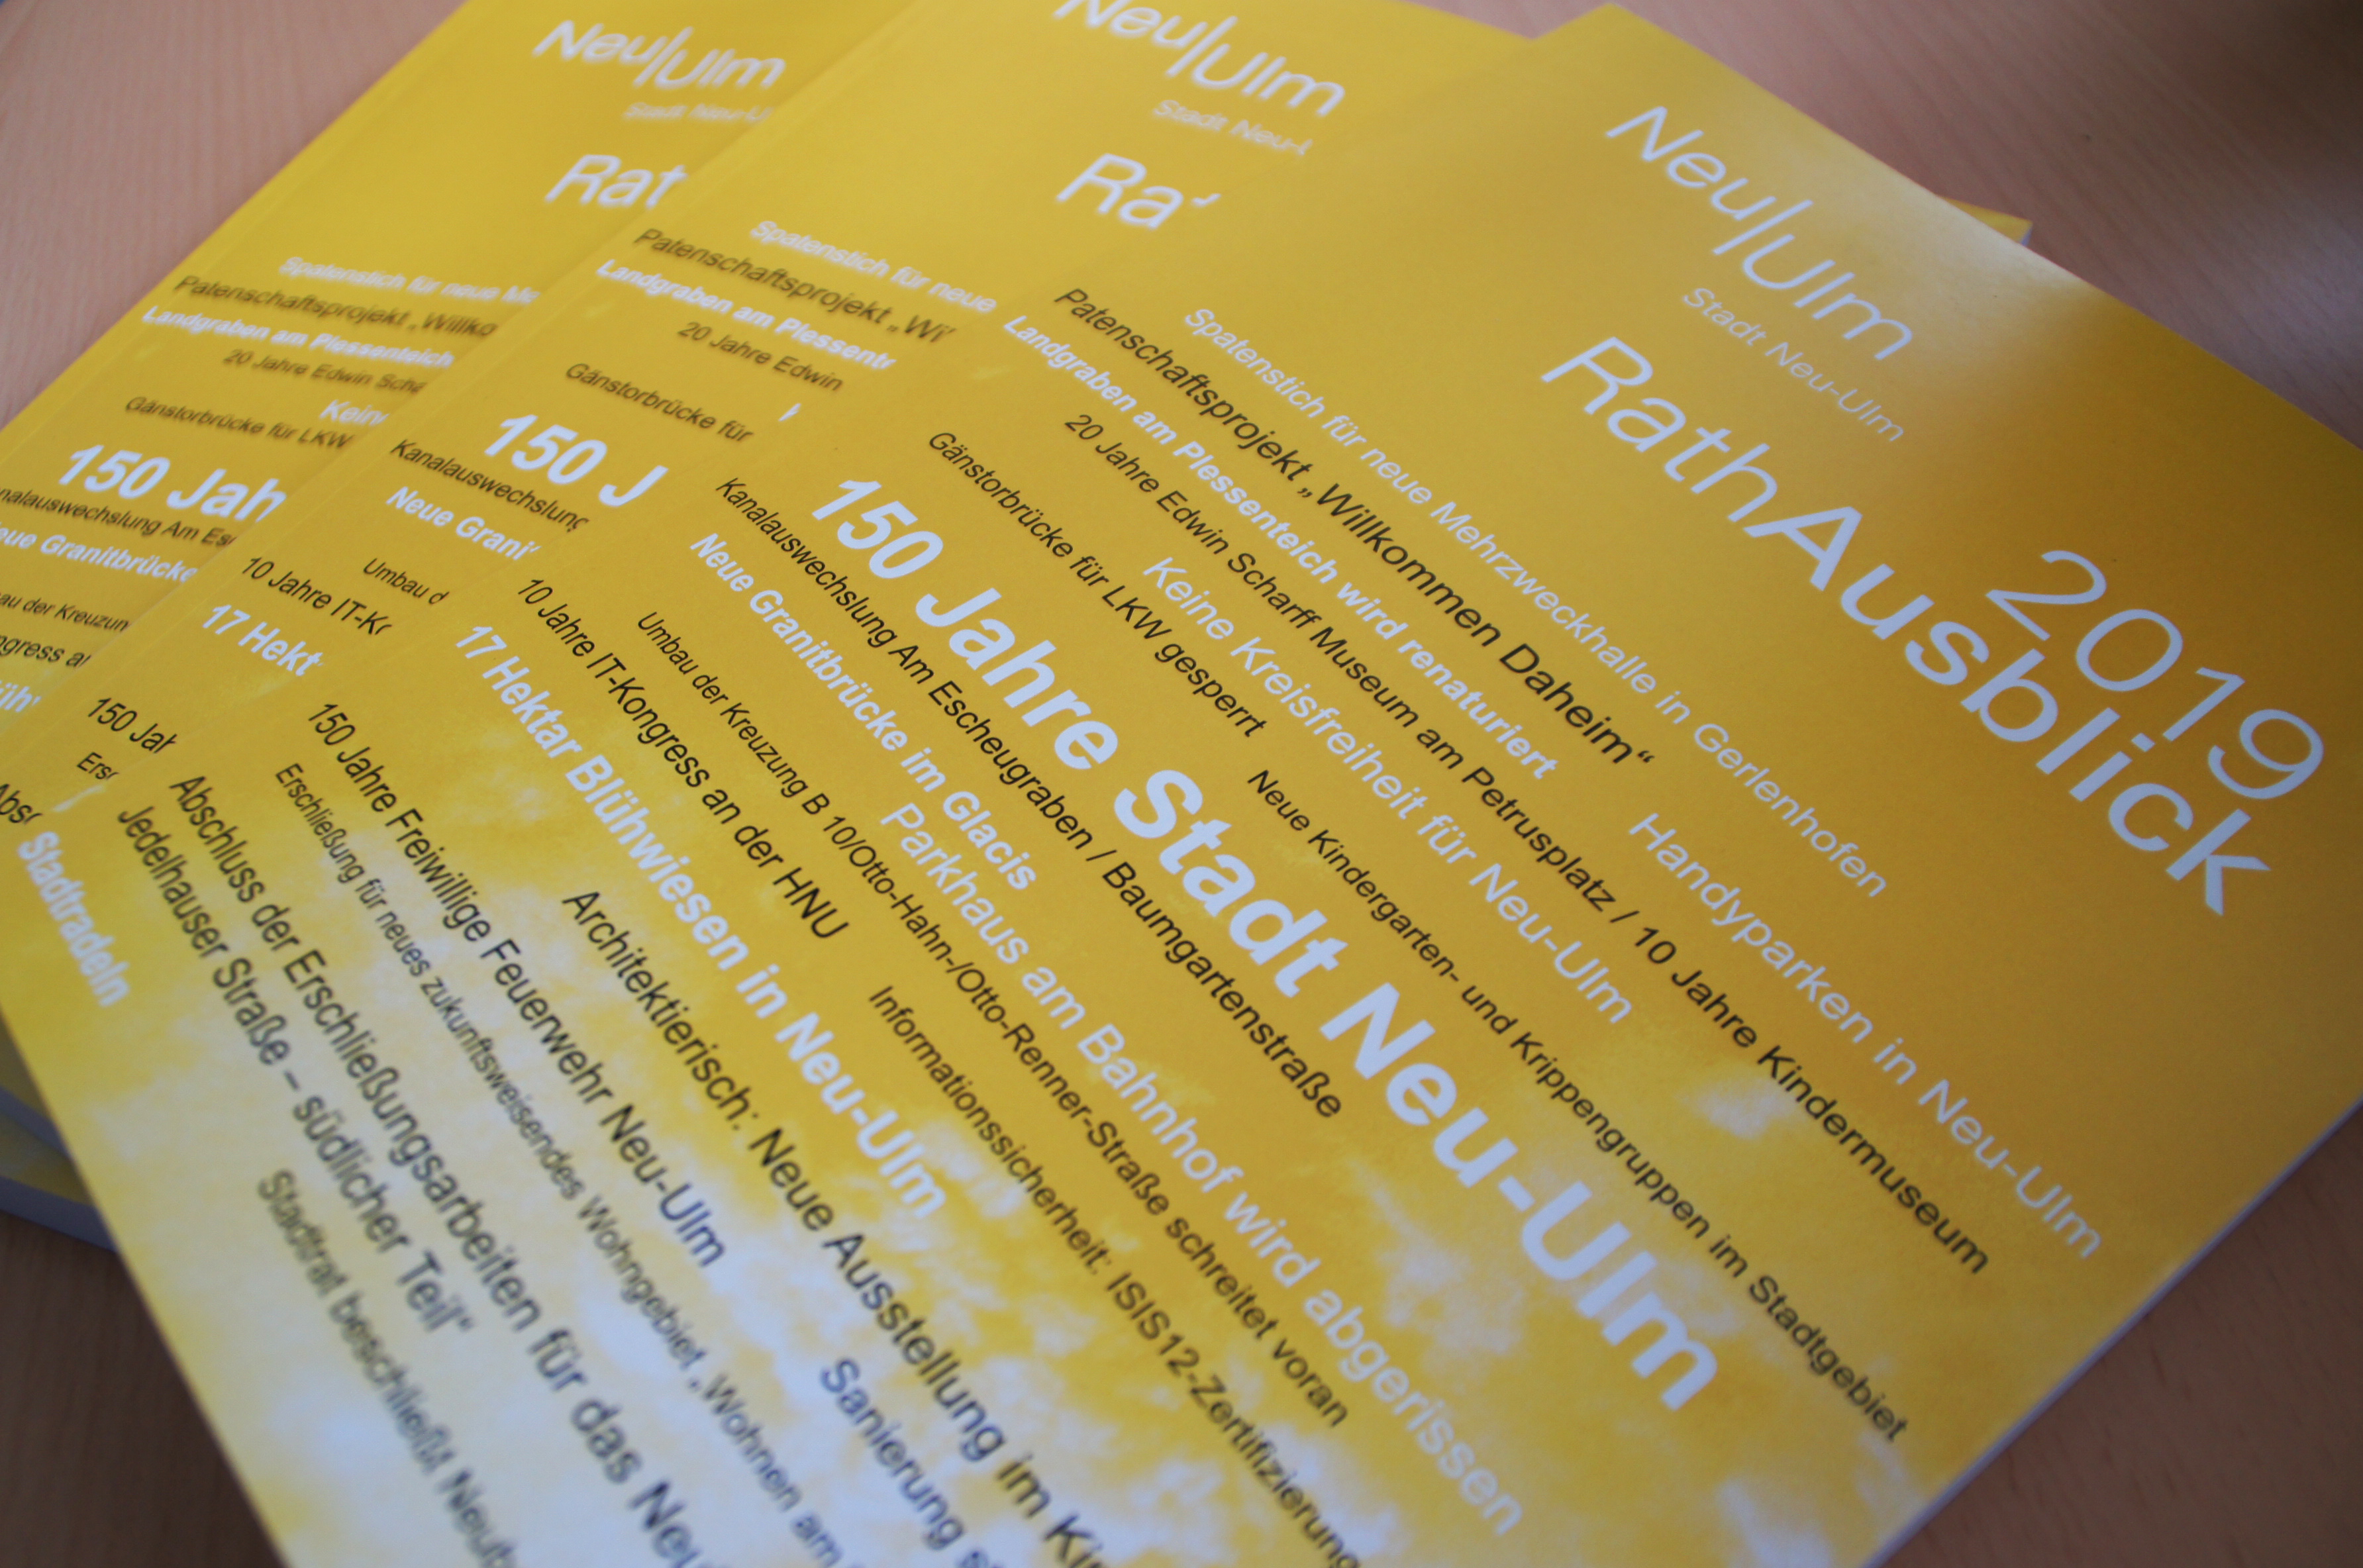 Neu|Ulm
Stadt Neu-Ulm
2019
RathAusblick
Spatenstich für neue Mehrzweckhalle in Gerlenhofen
Handyparken in Neu-Ulm
Patenschaftsprojekt „Willkommen Daheim“
Landgraben am Plessenteich wird renaturiert
20 Jahre Edwin Scharff Museum am Petrusplatz / 10 Jahre Kindermuseum
Keine Kreisfreiheit für Neu-Ulm
Gänstorbrücke für LKW gesperrt
Neue Kindergarten- und Krippengruppen im Stadtgebiet
150 Jahre Stadt Neu-Ulm
Kanalauswechslung Am Escheugraben / Baumgartenstraße
Neue Granitbrücke im Glacis
Parkhaus am Bahnhof wird abgerissen
Umbau der Kreuzung B 10/Otto-Hahn-/Otto-Renner-Straße schreitet voran
10 Jahre IT-Kongress an der HNU
Informationssicherheit: ISIS12-Zertifizierung
17 Hektar Blühwiesen in Neu-Ulm
Architektierisch: Neue Ausstellung im
150 Jahre Freiwillige Feuerwehr Neu-Ulm
Sanierung
Erschließung für neues zukunftsweisendes Wohngebiet „Wohnen am
Abschluss der Erschließungsarbeiten für das
Jedelhauser Straße – südlicher Teil“
Stadtrat beschließt
Stadtradeln
Neu|Ulm
Stadt Neu-
Ra
Spatenstich für neue
Patenschaftsprojekt
Landgraben am
20 Jahre Edwin
Gänstorbrücke für
150 J
Kanalauswechslung
Neue
Umbau d
10 Jahre
17 Hekt
150
Neu|Ulm
Stadt Neu-U
Rat
Spatenstich für neue
Patenschaftsprojekt „Willko
Landgraben am Plessenteich
20 Jahre Edwin
Gänstorbrücke für LKW
150 Jah
Am
Granitbrücke
der